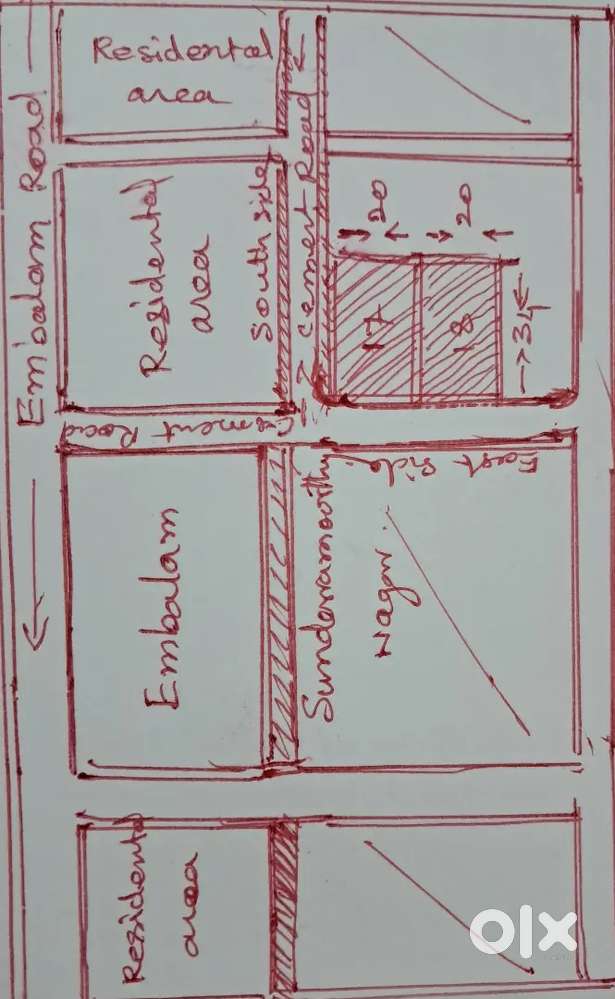 Embalam Road
Residental
area
Residental
area
South side
Cement Road
20
20
17
18
34
Cement Road
East Side
Embalam
Sunderamoorthy
Nagar
Residental
area
olx